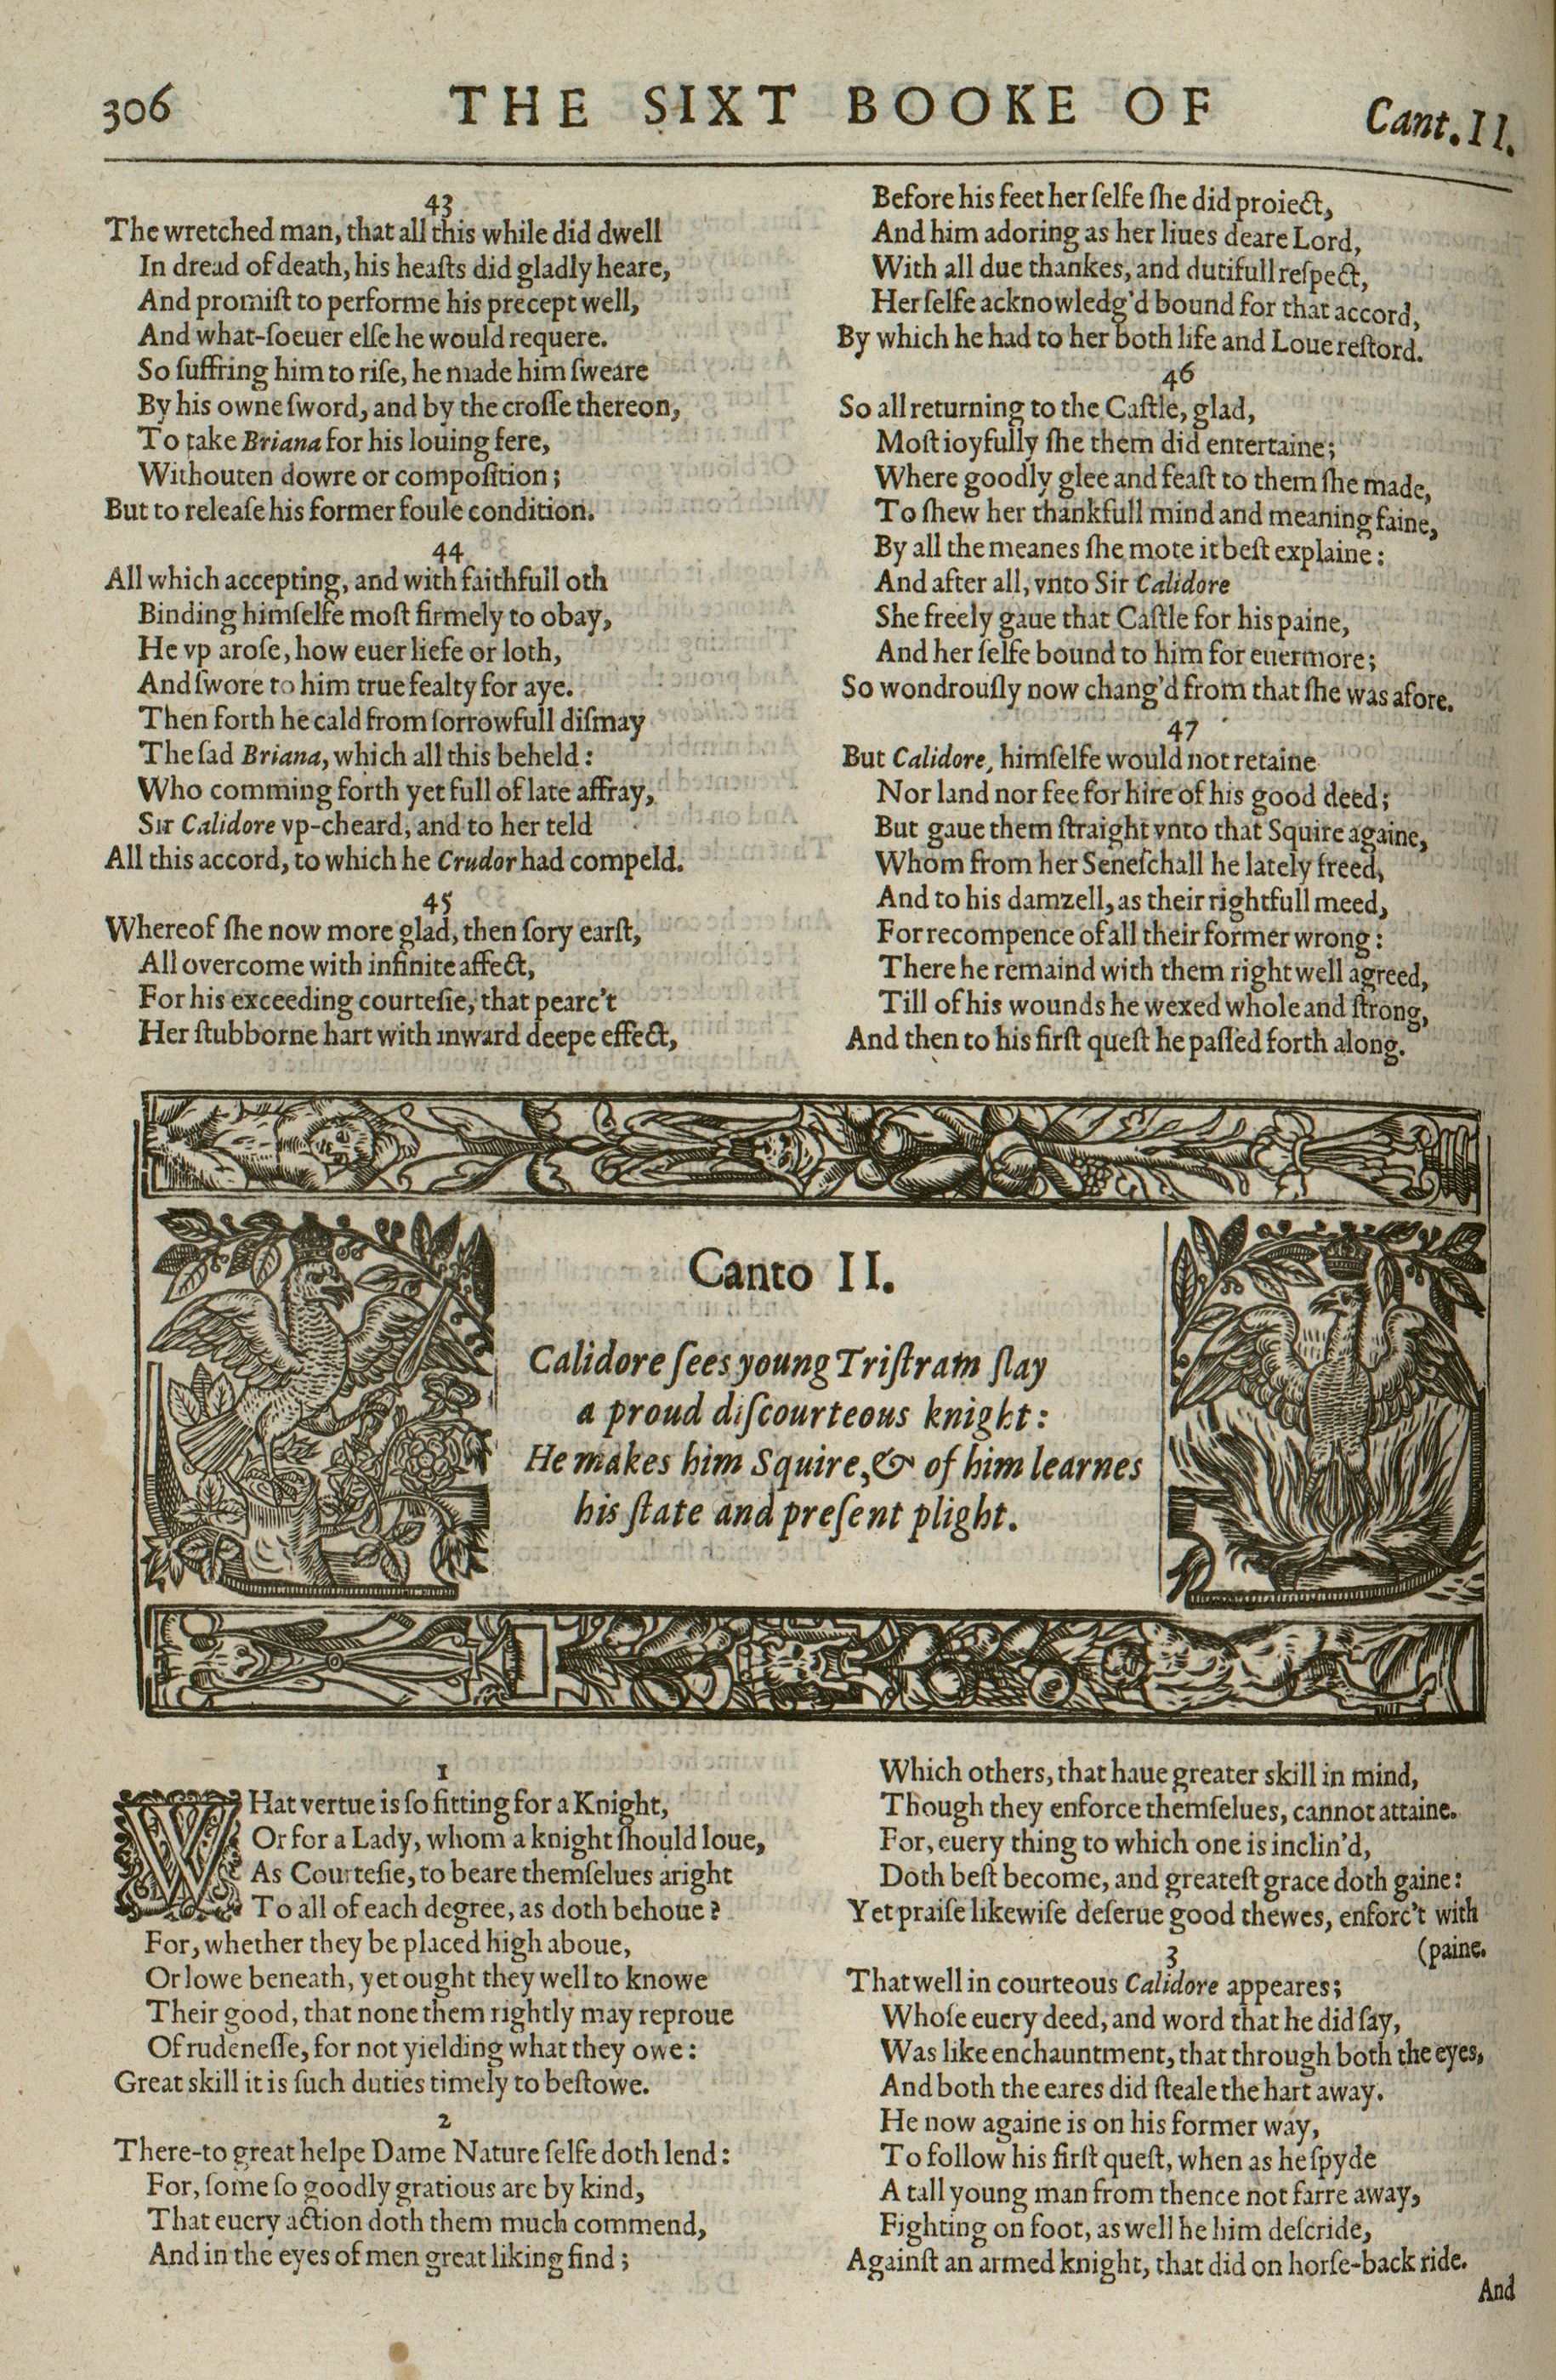 306 THE SIXT BOOKE OF Cant. II.
43
The wretched man, that all this while did dwell
In dread of death, his heaſts did gladly heare,
And promiſt to performe his precept well,
And what-ſoeuer elſe he would requere.
So ſuffring him to riſe, he made him ſweare
By his owne ſword, and by the croſſe thereon,
To take Briana for his louing fere,
Withouten dowre or compoſition;
But to releaſe his former foule condition.
44
All which accepting, and with faithfull oth
Binding himſelfe moſt firmely to obay,
He vp aroſe, how euer liefe or loth,
And ſwore to him true fealty for aye.
Then forth he cald from ſorrowfull diſmay
The ſad Briana, which all this beheld:
Who comming forth yet full of late affray,
Sir Calidore vp-cheard, and to her teld
All this accord, to which he Crudor had compeld.
45
Whereof ſhe now more glad, then ſory earſt,
All overcome with infinite affect,
For his exceeding courteſie, that pearc't
Her ſtubborne hart with inward deepe effect,
Before his feet her ſelfe ſhe did proiect,
And him adoring as her liues deare Lord,
With all due thankes, and dutifull reſpect,
Her ſelfe acknowledg'd bound for that accord,
By which he had to her both life and Loue reſtord.
46
So all returning to the Caſtle, glad,
Moſt ioyfully ſhe them did entertaine;
Where goodly glee and feaſt to them ſhe made,
To ſhew her thankfull mind and meaning faine,
By all the meanes ſhe mote it beſt explaine:
And after all, vnto Sir Calidore
She freely gaue that Caſtle for his paine,
And her ſelfe bound to him for euermore;
So wondrouſly now chang'd from that ſhe was afore.
47
But Calidore, himſelfe would not retaine
Nor land nor fee for hire of his good deed;
But gaue them ſtraight vnto that Squire againe,
Whom from her Seneſchall he lately freed,
And to his damzell, as their rightfull meed,
For recompence of all their former wrong:
There he remaind with them right well agreed,
Till of his wounds he wexed whole and ſtrong,
And then to his firſt queſt he paſſed forth along.
Canto II.
Calidore ſees young Triſtram ſlay
a proud diſcourteous knight:
He makes him Squire, & of him learnes
his ſtate and preſent plight.
1
WHat vertue is ſo fitting for a Knight,
Or for a Lady, whom a knight ſhould loue,
As Courteſie, to beare themſelues aright
To all of each degree, as doth behoue?
For, whether they be placed high aboue,
Or lowe beneath, yet ought they well to knowe
Their good, that none them rightly may reproue
Of rudeneſſe, for not yielding what they owe:
Great skill it is ſuch duties timely to beſtowe.
2
There-to great helpe Dame Nature ſelfe doth lend:
For, ſome ſo goodly gratious are by kind,
That euery action doth them much commend,
And in the eyes of men great liking find;
Which others, that haue greater skill in mind,
Though they enforce themſelues, cannot attaine.
For, euery thing to which one is inclin'd,
Doth beſt become, and greateſt grace doth gaine:
Yet praiſe likewiſe deſerue good thewes, enforc't with
(paine.
3
That well in courteous Calidore appeares;
Whoſe euery deed, and word that he did ſay,
Was like enchauntment, that through both the eyes,
And both the eares did ſteale the hart away.
He now againe is on his former way,
To follow his firſt queſt, when as he ſpyde
A tall young man from thence not farre away,
Fighting on foot, as well he him deſcride,
Againſt an armed knight, that did on horſe-back ride.
And